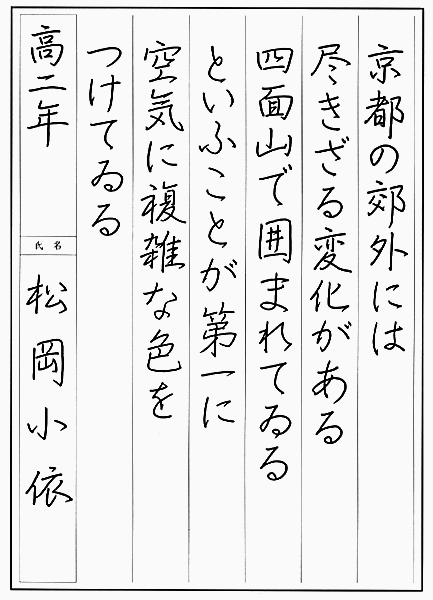 京都の郊外には
尽きざる変化がある
四面山で囲まれてゐる
といふことが第一に
空気に複雑な色を
つけてゐる
高二年
氏名
松岡小依